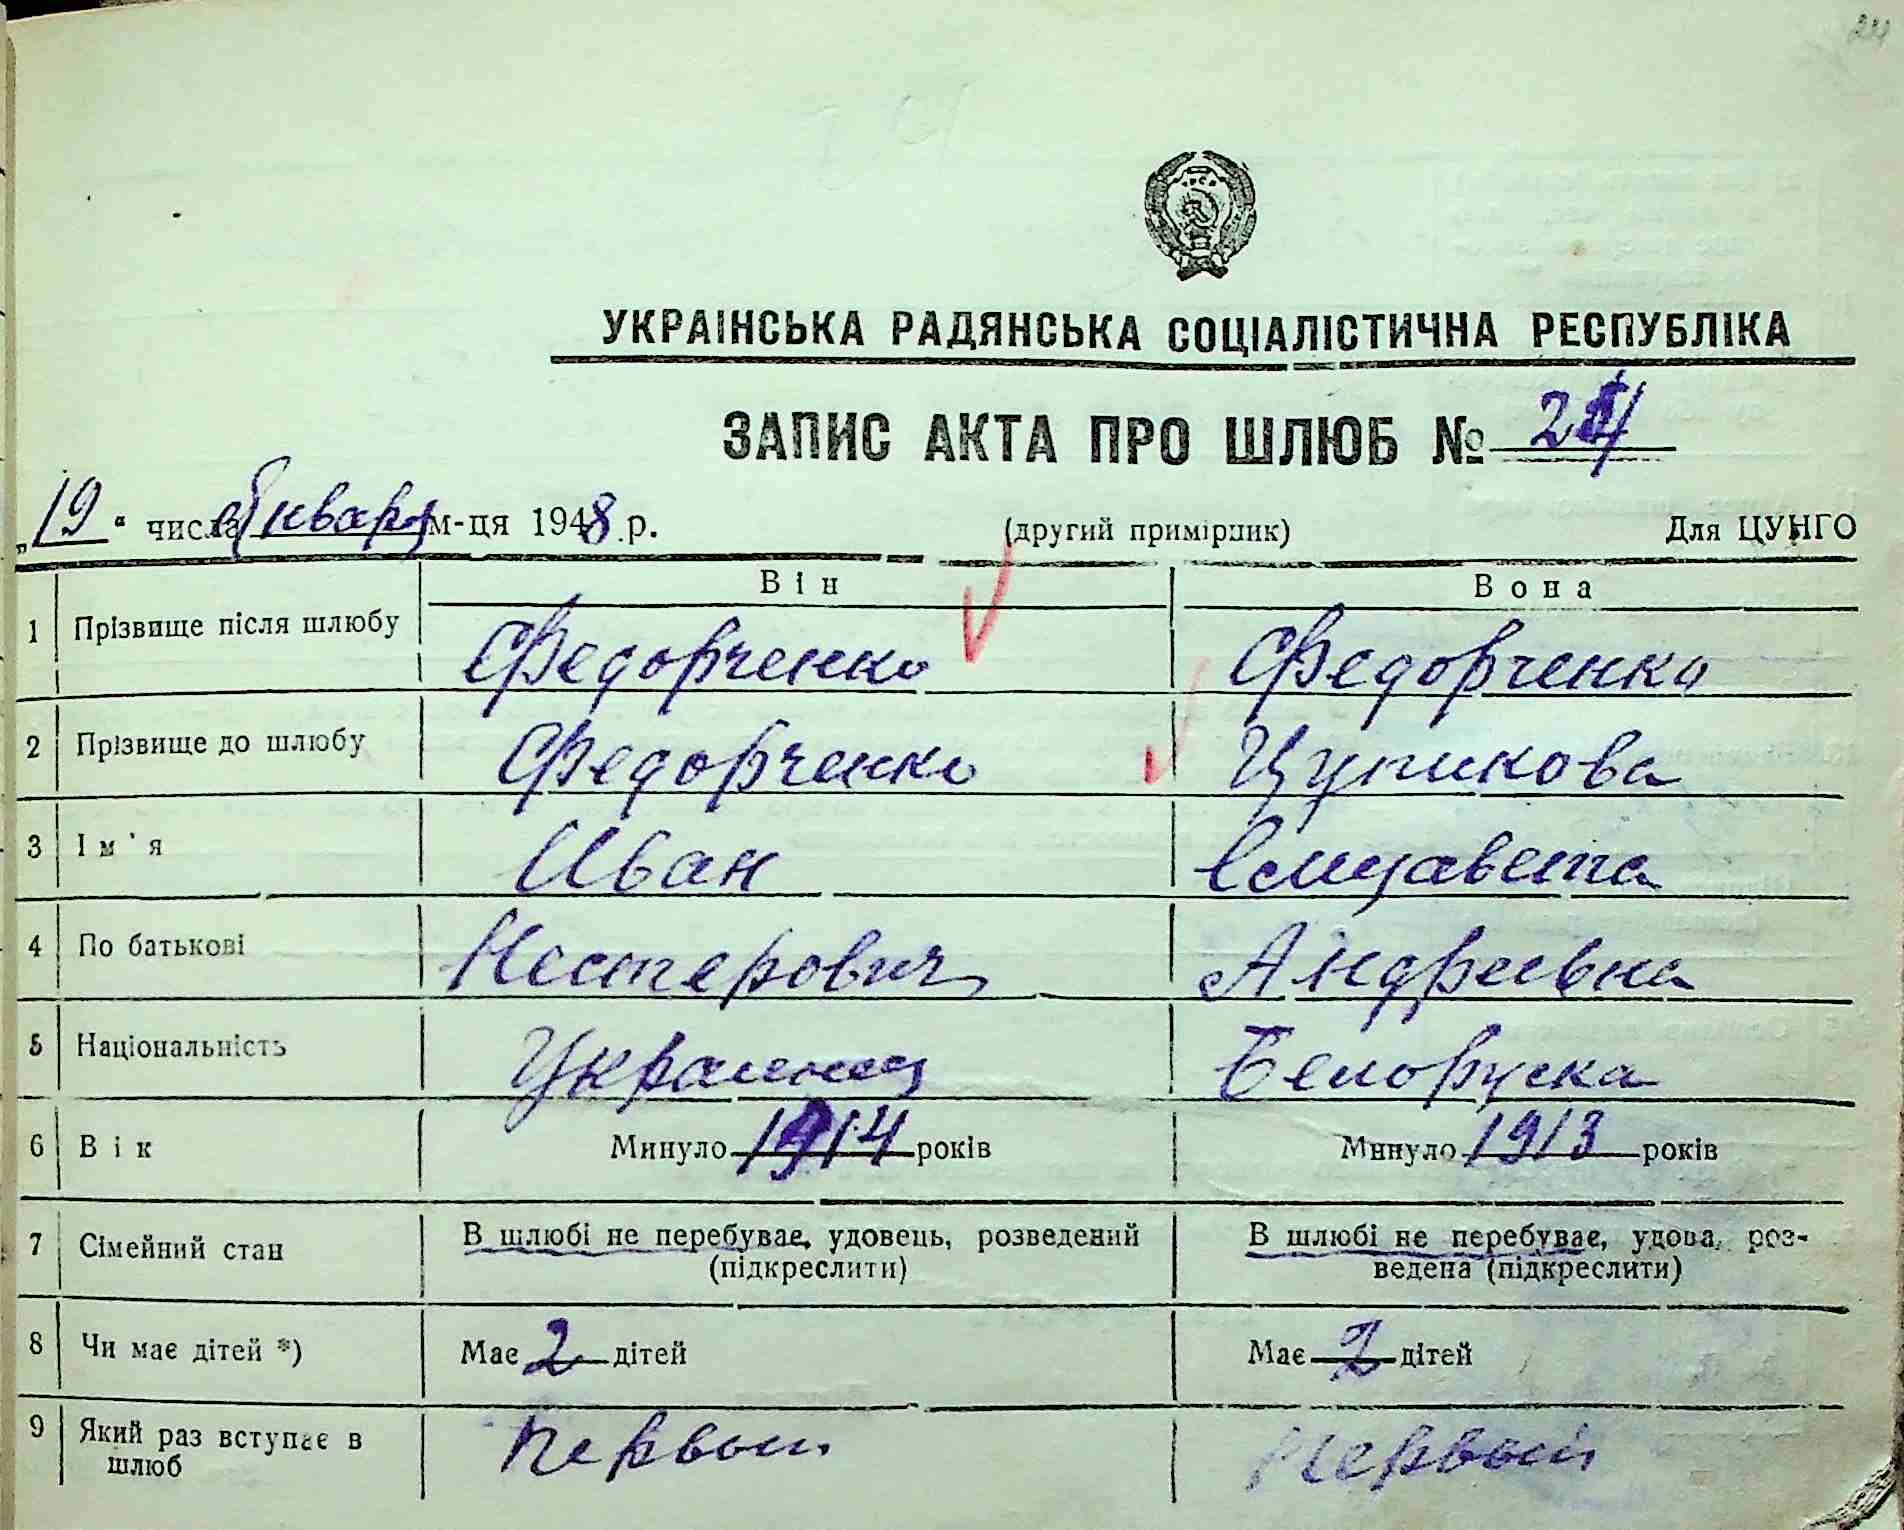 24
УКРАІНСЬКА РАДЯНСЬКА СОЦІАЛІСТИЧНА РЕСПУБЛІКА
ЗАПИС АКТА ПРО ШЛЮБ № 24
„19“ числа января м-ця 1948 р. (другий примірник) Для ЦУНГО
Він Вона
1 Прізвище після шлюбу Федорченко Федорченко
2 Прізвище до шлюбу Федорченко Цупикова
3 Ім'я Иван Елизавета
4 По батькові Нестерович Андреевна
5 Національність Украинец Белоруска
6 Вік Минуло 1914 років Минуло 1913 років
7 Сімейний стан В шлюбі не перебуває, удовець, розведений (підкреслити) В шлюбі не перебуває, удова, роз-
ведена (підкреслити)
8 Чи має дітей *) Має 2 дітей Має 2 дітей
9 Який раз вступає в шлюб Первый Первый